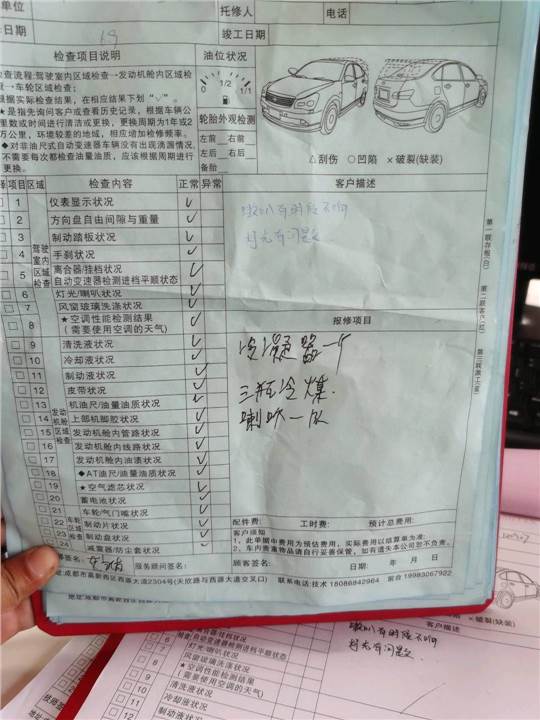 单位
托修人
电话
日期
竣工日期
检查项目说明
油位状况
检查流程:驾驶室内区域检查→发动机舱内区域检
→车轮区域检查;
根据实际检查结果，在相应结果下划“√”。
★是指先询问客户或查看历史记录，根据车辆公
里数或时间进行清洁或更换，更换周期为1年或2
万公里，环境较差的地域，相应增加检修频率。
◆对非油尺式自动变速器车辆没有出现滴漏情况，
不需要每次都检查油量油质，应该根据周期进行
更换。
0 1/2 1/1
轮胎外观检测
左前 右前
左后 右后
备胎
△刮伤 ○凹陷 ×破裂(缺装)
项目 区域 检查内容 正常 异常
客户描述
喇叭有时候不响
灯光有问题
驾驶室内区域检查
1 仪表显示状况
2 方向盘自由间隙与重量
3 制动踏板状况
4 手刹状况
5 离合器/挂档状况
自动变速器检测进档平顺状态
6 灯光/喇叭状况
7 风窗玻璃洗涤状况
8 ★空调性能检测结果
(需要使用空调的天气)
报修项目
冷凝器一个
三瓶冷煤.
喇叭一队
发动机舱区域检查
9 清洗液状况
10 冷却液状况
11 制动液状况
12 皮带状况
13 机油尺/油量油质状况
14 上部机脚胶状况
15 发动机舱内管路状况
16 发动机舱内线路状况
17 发动机舱内油渍状况
18 ◆AT油尺/油量油质状况
19 ★空气滤芯状况
20 蓄电池状况
车轮区域检查
21 车轮/气门嘴状况
22 制动片状况
23 制动盘状况
减震器/防尘套状况
配件费: 工时费: 预计总费用:
客户须知
1、此单据中费用为预估费用，实际费用以结算单为准;
2、车内贵重物品请自行妥善保管，如有遗失本公司恕不负责。
签名:
服务顾问签名:
顾客签名:
日期: 年 月 日
址:成都市高新西区西源大道2304号(天欣路与西源大道交叉口)
联系电话:技术 18086842964 前台 19983067922
第一联存根(白)
第二联客户(红)
×破裂(缺装)
客户描述
喇叭有时候不响
灯光有问题
离合器/挂档状况
自动变速器检测进档平顺状态
灯光/喇叭状况
风窗玻璃洗涤状况
★空调性能检测结果
(需要使用空调的天气)
清洗液状况
冷却液状况
制动液状况